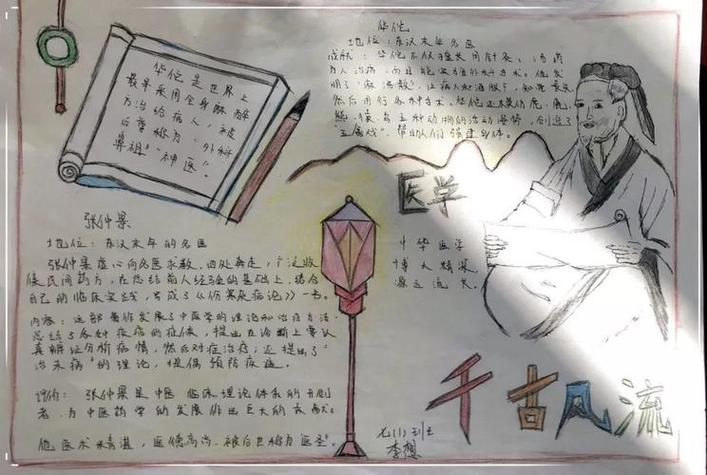 华佗是世界上
最早采用全身麻醉
方法给病人，被
后尊称为"外科
鼻祖""神医"。
华佗
地位：东汉末年名医
成就：华佗不仅擅长用针灸、汤药
为人治病，而且能实施外科手术。他发
明了"麻沸散"，让病人和酒服下，知觉丧失
然后用行各种手术。华佗还模仿虎、鹿、
熊、猿、鸟五种动物的活动姿势，创造了
"五禽戏"，帮助人们强建身体。
医学
中华医学
博大精深
源远流长。
张仲景
地位：东汉末年的名医
张仲景虚心向名医求教，四处奔走，广泛收
候民间药方，在总结前人经验的基础上，结合
自己的临床实践，写成了《伤寒杂病论》一书。
内容：这部著作发展了中医学的理论和治疗方法
总结了各种疾病的症候，提出在诊断上要认
真辨证分析病情，然后对症治疗；还提出了"
治未病"的理论，提倡预防疾病。
评价：张仲景是中医临床理论体系的开创
者，为中医药学的发展作出巨大的贡献。
他医术精湛，医德高尚，被后世称为医圣。
七(1)班
李想
千古风流